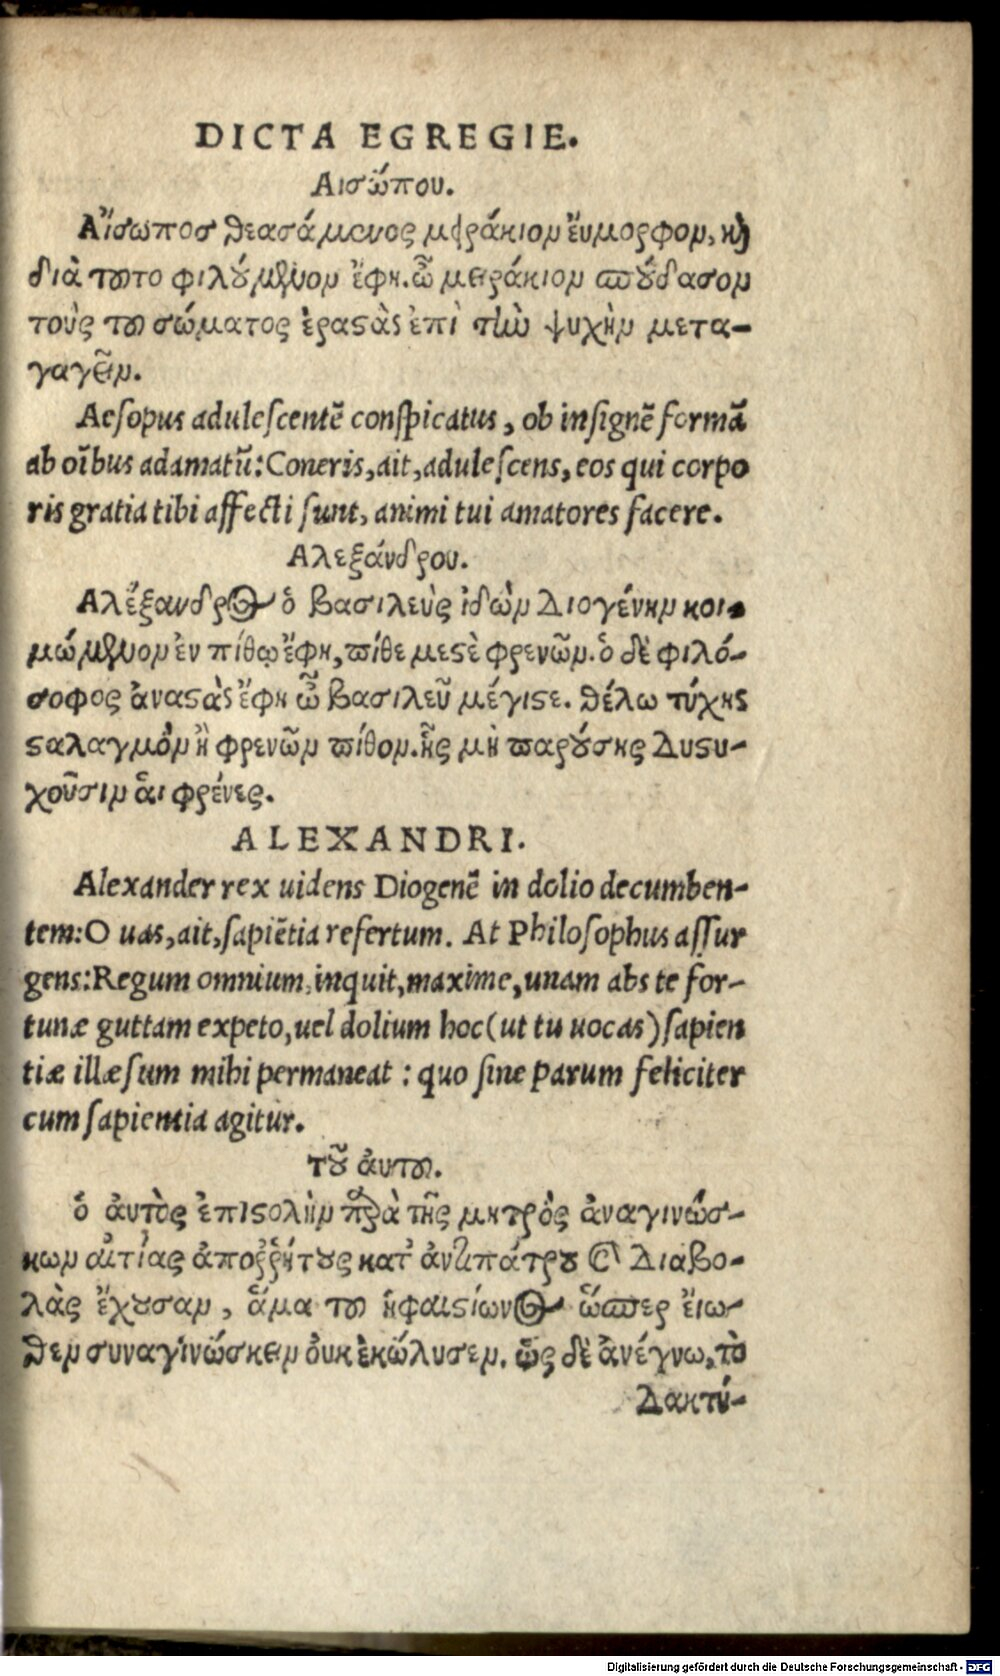 DICTA EGREGIE.
Αισώπου.
Αἴσωπος θεασάμενος μειράκιον ἔυμορφον, καὶ
διὰ τοῦτο φιλούμενον ἔφη. ὦ μειράκιον σπούδασον
τοὺς τοῦ σώματος ἐραστὰς ἐπὶ τὴν ψυχὴν μετα-
γαγεῖν.
Aesopus adulescentē conspicatus, ob insignē formā
ab oībus adamatū: Coneris, ait, adulescens, eos qui corpo
ris gratia tibi affecti sunt, animi tui amatores facere.
Αλεξάνδρου.
Αλέξανδρος ὁ βασιλεὺς ἰδὼν Διογένην κοι-
μώμενον ἐν πίθῳ ἔφη, πίθε μεστὲ φρενῶν. ὁ δὲ φιλό-
σοφος ἀναστὰς ἔφη ὦ βασιλεῦ μέγιστε. θέλω τύχης
σταλαγμὸν ἢ φρενῶν πίθον. ἧς μὴ παρούσης Δυστυ-
χοῦσιν ἃι φρένες.
ALEXANDRI.
Alexander rex uidens Diogenē in dolio decumben-
tem: O uas, ait, sapiētia refertum. At Philosophus assur
gens: Regum omnium, inquit, maxime, unam abs te for-
tunæ guttam expeto, uel dolium hoc (ut tu uocas) sapien
tiæ illæsum mihi permaneat: quo sine parum feliciter
cum sapientia agitur.
τοῦ ἀυτοῦ.
ὁ ἀυτὸς ἐπιστολὴν παρὰ τῆς μητρὸς ἀναγινώσ-
κων αἰτίας ἀποῤῥήτους κατ' ἀντιπάτρου καὶ Διαβο-
λὰς ἔχουσαν, ἅμα τοῦ ἡφαιστίωνος ὥσπερ ἔιω-
θεν συναγινώσκειν ὀυκ ἐκώλυσεν. ὡς δὲ ἀνέγνω, τὸ
Δακτύ-
Digitalisierung gefördert durch die Deutsche Forschungsgemeinschaft - DFG